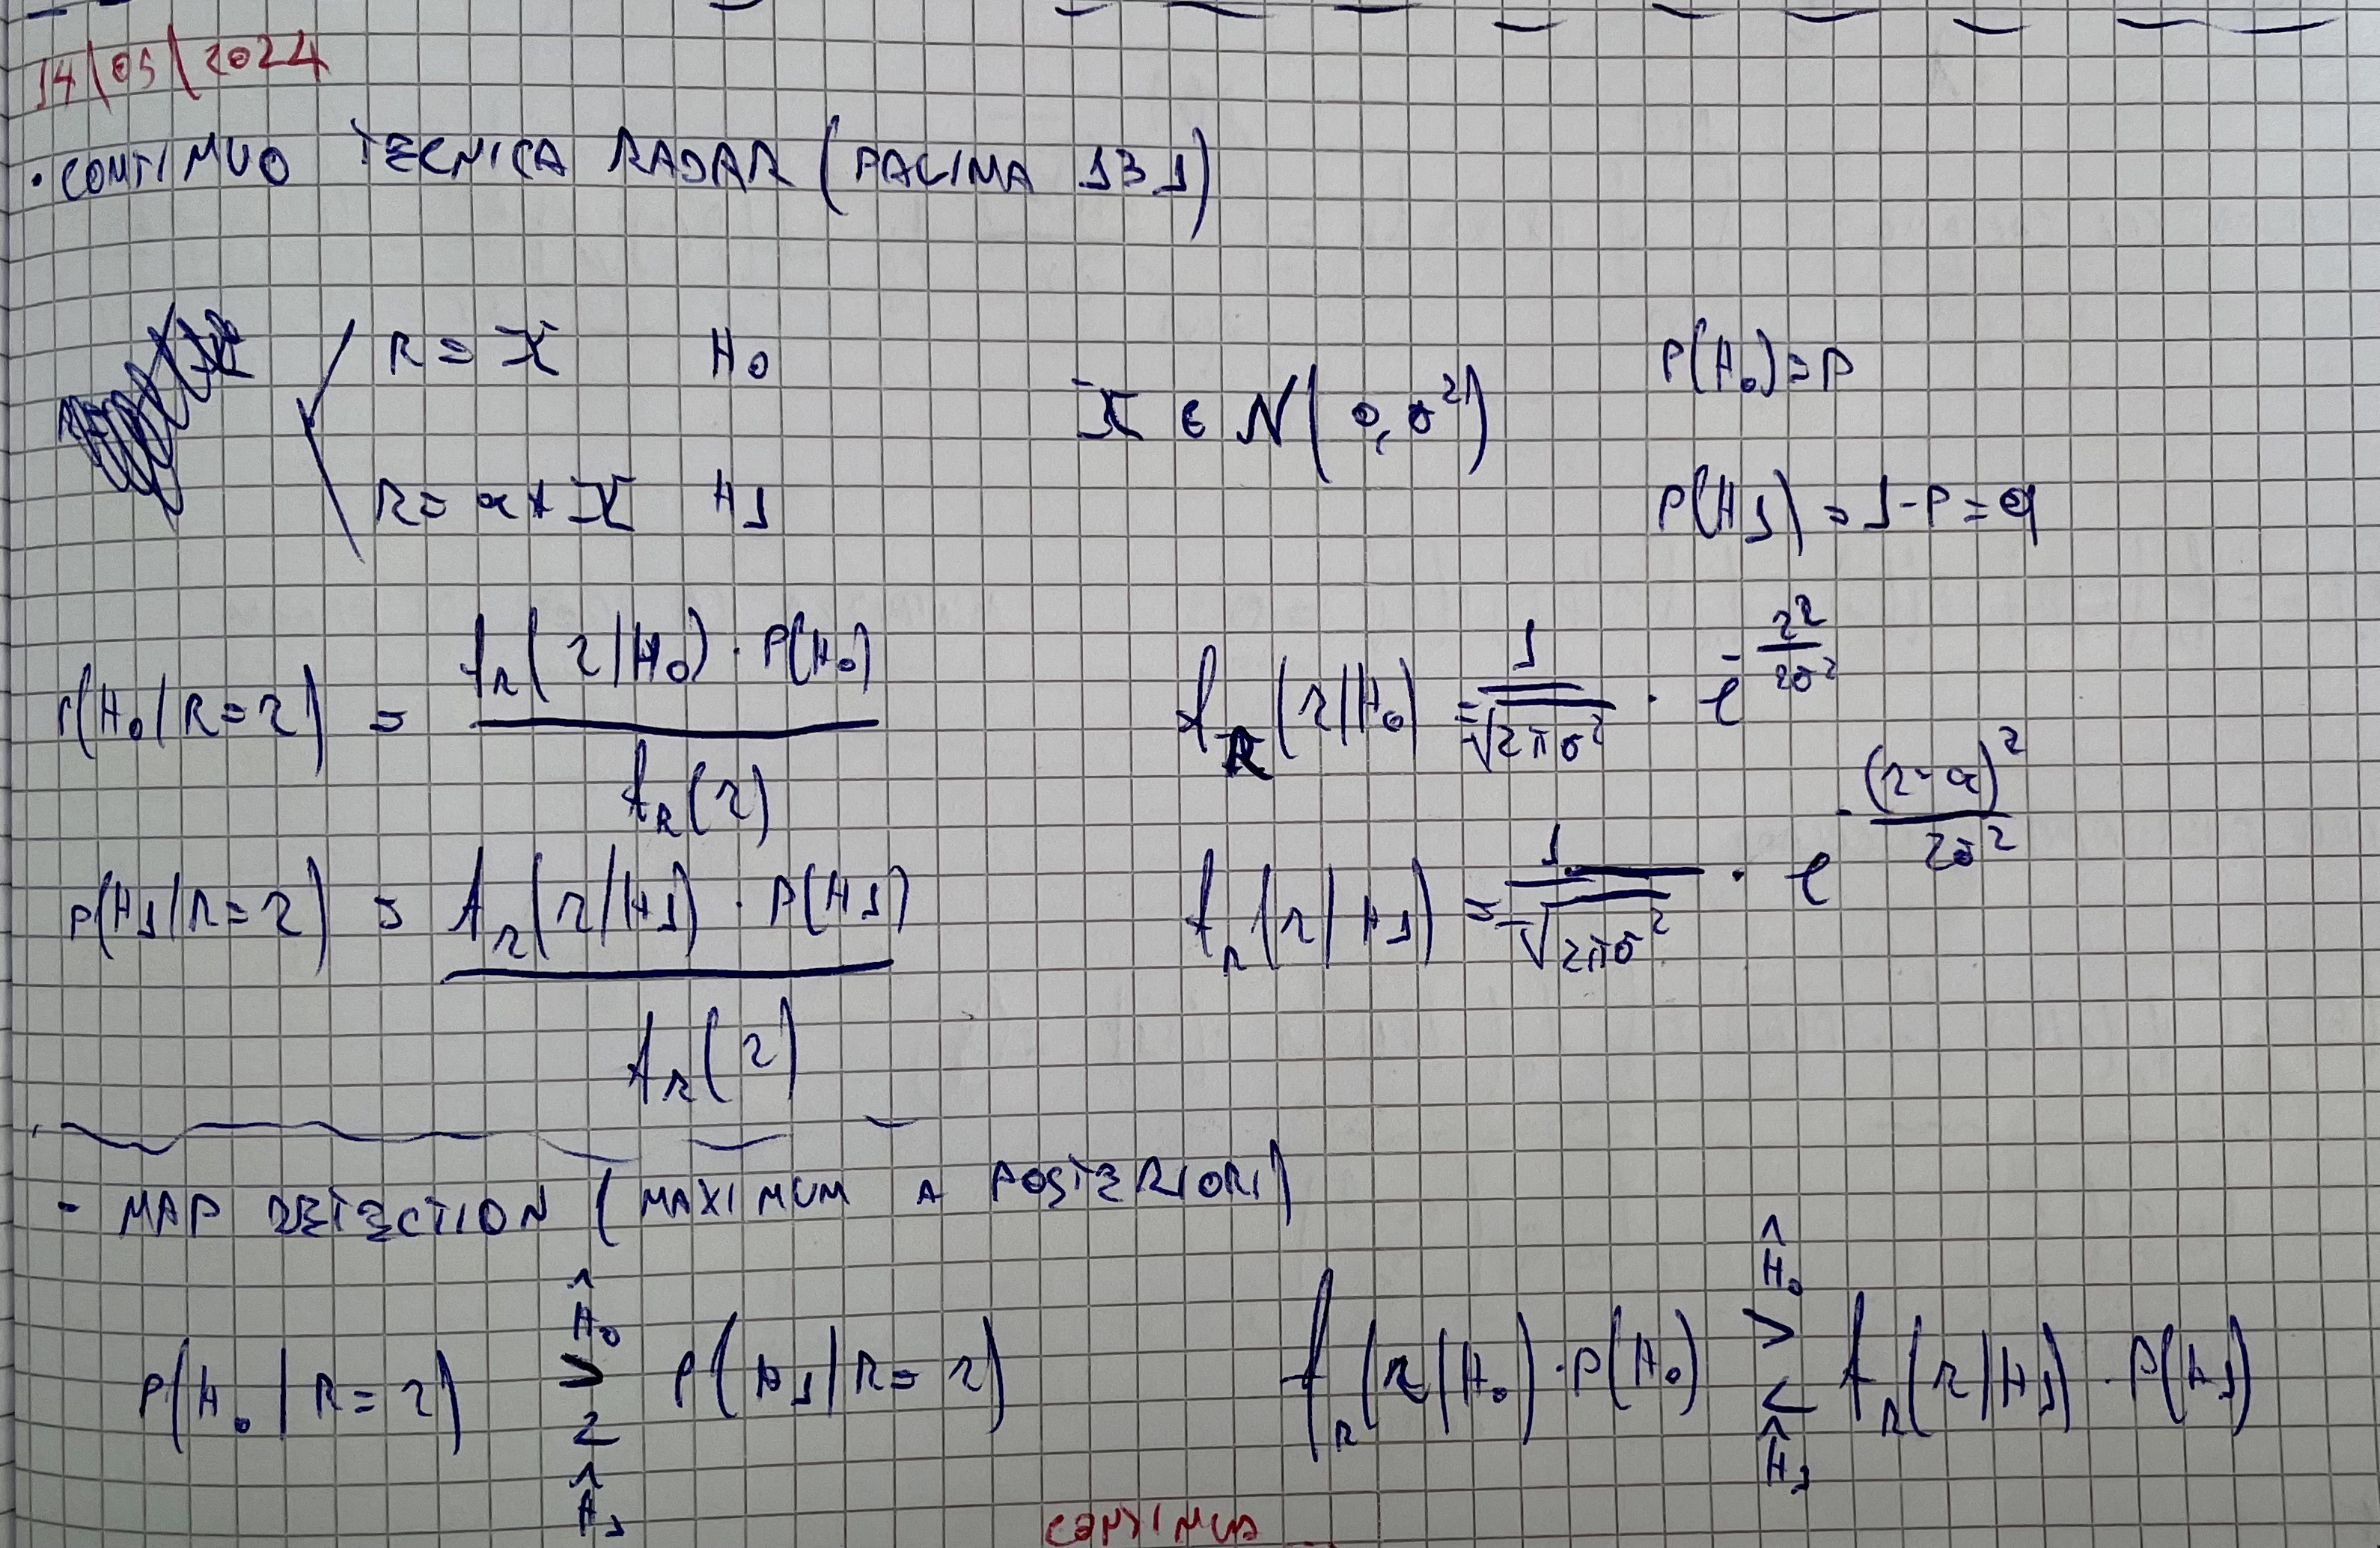 14/05/2024
· CONTINUO TECNICA RADAR (PAGINA 131)
R = X H₀
X ∈ N(0, σ²)
P(H₀) = P
R = a + X H1
P(H1) = 1 - P = q
P(H₀ | R = r) = f_R(r | H₀) · P(H₀) / f_R(r)
f_R(r | H₀) = 1 / √(2πσ²) · e^(-r² / 2σ²)
P(H1 | R = r) = f_R(r | H1) · P(H1) / f_R(r)
f_R(r | H1) = 1 / √(2πσ²) · e^(-(r - a)² / 2σ²)
- MAP DETECTION (MAXIMUM A POSTERIORI)
P(H₀ | R = r) Ĥ₀ > < Ĥ1 P(H1 | R = r)
f_R(r | H₀) · P(H₀) Ĥ₀ > < Ĥ1 f_R(r | H1) · P(H1)
CONTINUA